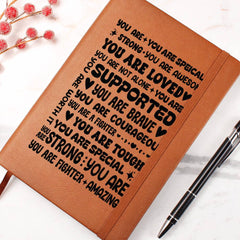 YOU ARE • YOU ARE SPECIAL
STRONG • YOU ARE AWESOM
YOU ARE LOVED
YOU ARE NOT ALONE • YOU ARE
SUPPORTED
YOU ARE BRAVE
YOU ARE COURAGEOU
YOU ARE A FIGHTER
YOU ARE TOUGH
YOU ARE SPECIAL
STRONG • YOU ARE
YOU ARE FIGHTER • AMAZING
YOU GOT
WORTH IT